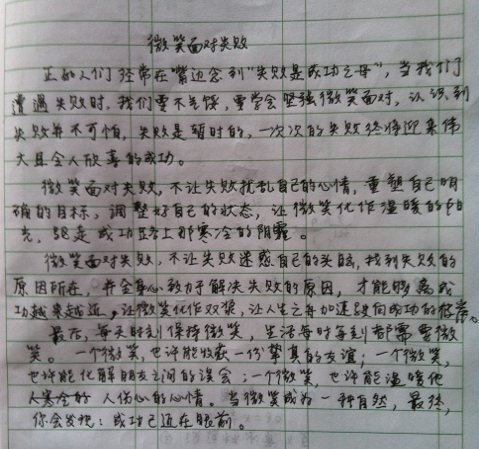 微笑面对失败
正如人们经常在嘴边念到“失败是成功之母”，当我们
遭遇失败时，我们要不气馁，要学会坚强微笑面对，认识到
失败并不可怕，失败是暂时的，一次次的失败终将迎来伟
大且令人欣喜的成功。
微笑面对失败，不让失败扰乱自己的心情，重塑自己明
确的目标，调整好自己的状态，让微笑化作温暖的阳
光，驱走成功路上那寒冷的阴霾。
微笑面对失败，不让失败迷惑自己的头脑，找到失败的
原因所在，并全身心致力于解决失败的原因，才能够离成
功越来越近，让微笑化作双桨，让人生之舟加速驶向成功的彼岸。
最后，每天时刻保持微笑，生活每时每刻都需要微
笑。一个微笑，也许能收获一份挚真的友谊；一个微笑，
也许能化解朋友之间的误会；一个微笑，也许能温暖他
人寒冷的 人伤心的心情。当微笑成为一种自然，最终，
你会发现：成功已近在眼前。